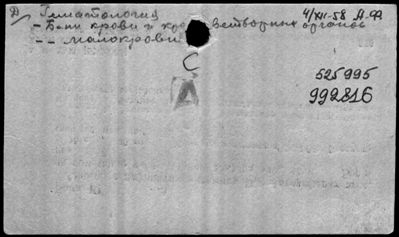 Д/ Гематология 4/XII-58 А.Ф
- Бол. крови и кроветворных органов
- - малокровие
С
А
525995
992816